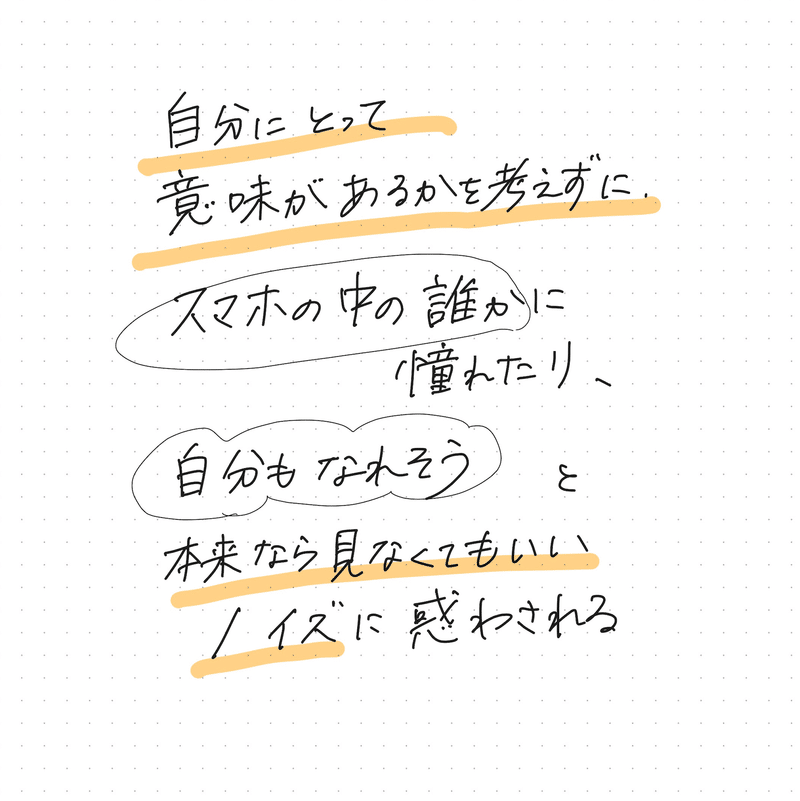 自分にとって
意味があるかを考えずに、
スマホの中の誰かに
憧れたり、
自分もなれそう と
本来なら見なくてもいい
ノイズに惑わされる